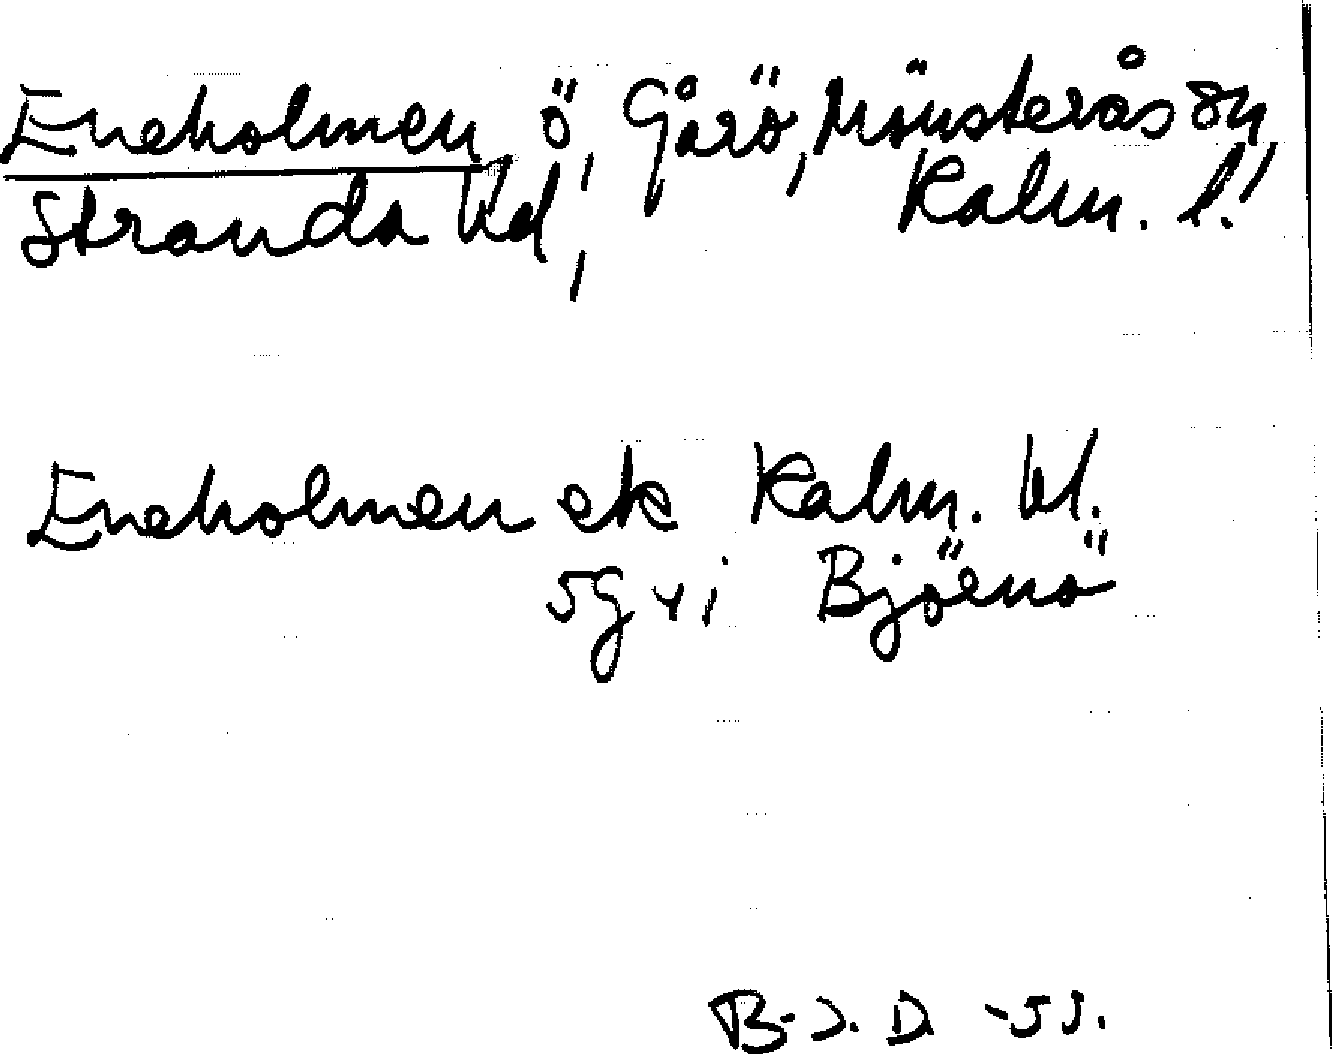 Eneholmen, ö, Gårö, Mönsterås sn,
Stranda hd, Kalm. l.
Eneholmen ek Kalm. bl.
5g vi Björnö
B-J. D -55.